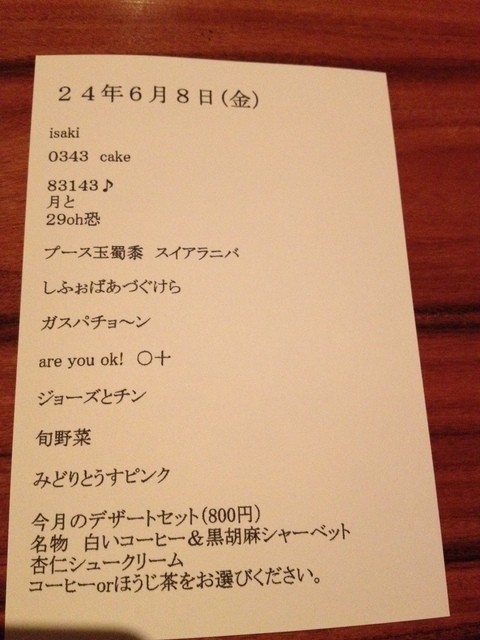 ２４年６月８日（金）
isaki
0343 cake
83143♪
月と
29oh恐
プース玉蜀黍 スイアラニバ
しふぉばあづぐけら
ガスパチョ～ン
are you ok! 〇十
ジョーズとチン
旬野菜
みどりとうすピンク
今月のデザートセット（800円）
名物 白いコーヒー＆黒胡麻シャーベット
杏仁シュークリーム
コーヒーorほうじ茶をお選びください。